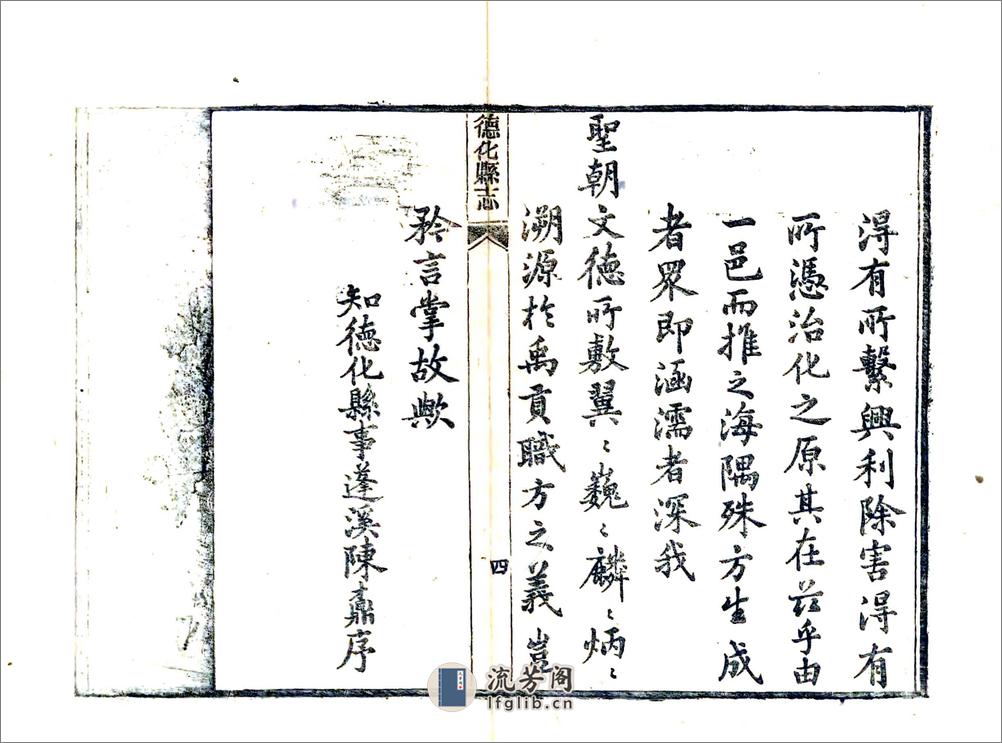 得有所繫興利除害得有
所憑治化之原其在茲乎由
一邑而推之海隅殊方生成
者眾即涵濡者深我
聖朝文德所敷翼〻巍〻麟〻炳〻
溯源於禹貢職方之義豈
德化縣志
四
矜言掌故歟
知德化縣事蓬溪陳鼒序
流芳阁
lfglib.cn